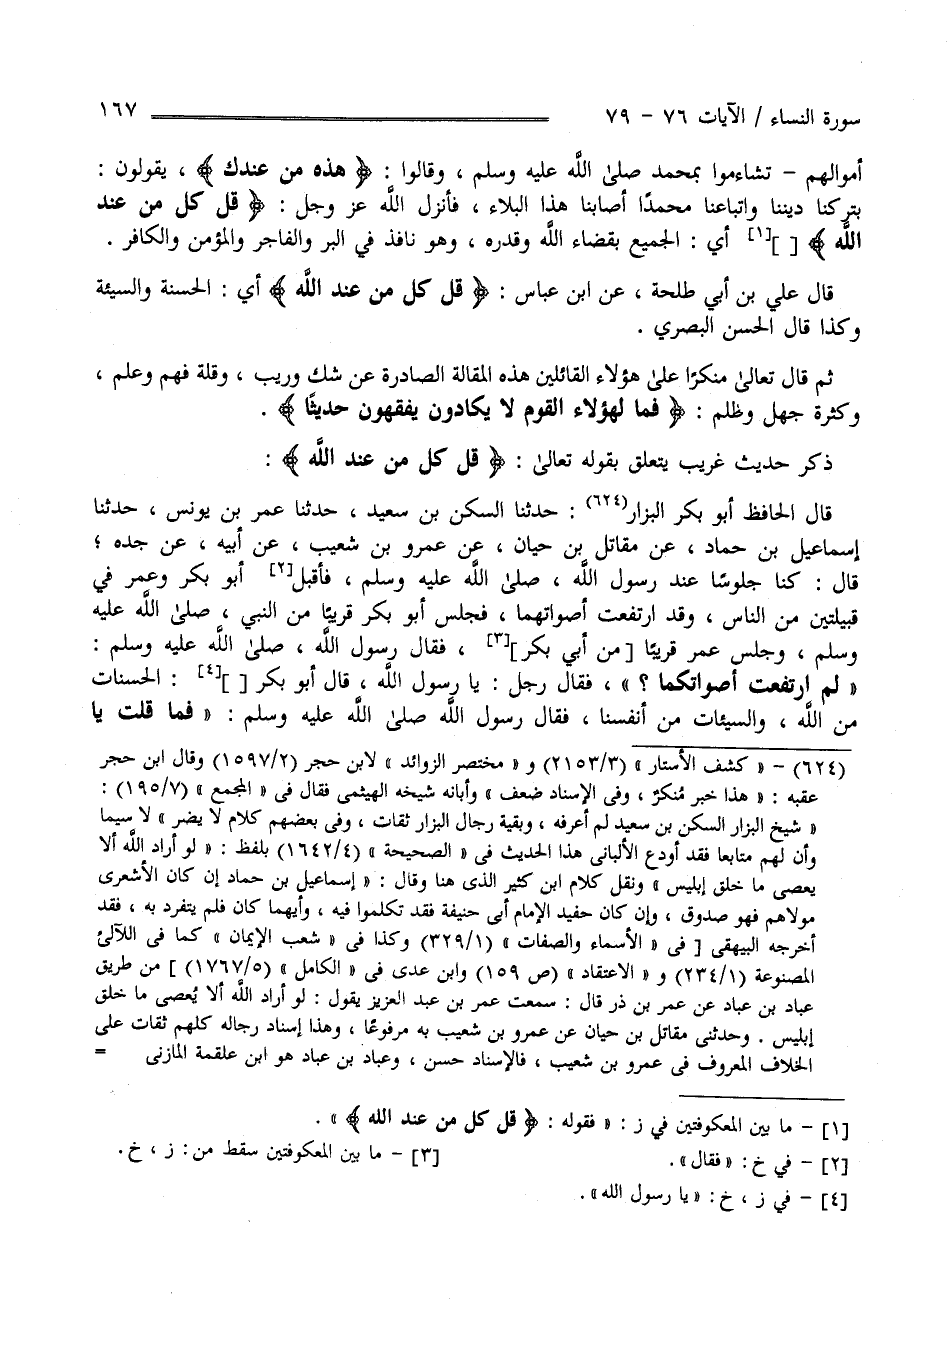 سورة النساء / الآيات ٧٦ - ٧٩ ١٦٧
أموالهم - تشاءموا بمحمد صلىٰ اللَّه عليه وسلم ، وقالوا : ﴿ هذه من عندك ﴾ ، يقولون :
بتركنا ديننا واتباعنا محمدًا أصابنا هذا البلاء ، فأنزل اللَّه عز وجل : ﴿ قل كل من عند
اللَّه ﴾ [ ][١] أي : الجميع بقضاء اللَّه وقدره ، وهو نافذ في البر والفاجر والمؤمن والكافر .
قال علي بن أبي طلحة ، عن ابن عباس : ﴿ قل كل من عند اللَّه ﴾ أي : الحسنة والسيئة
وكذا قال الحسن البصري .
ثم قال تعالىٰ منكرًا علىٰ هؤلاء القائلين هذه المقالة الصادرة عن شك وريب ، وقلة فهم وعلم ،
وكثرة جهل وظلم : ﴿ فما لهؤلاء القوم لا يكادون يفقهون حديثًا ﴾ .
ذكر حديث غريب يتعلق بقوله تعالىٰ : ﴿ قل كل من عند اللَّه ﴾ :
قال الحافظ أبو بكر البزار(٦٢٤) : حدثنا السكن بن سعيد ، حدثنا عمر بن يونس ، حدثنا
إسماعيل بن حماد ، عن مقاتل بن حيان ، عن عمرو بن شعيب ، عن أبيه ، عن جده ؛
قال : كنا جلوسًا عند رسول اللَّه ، صلىٰ اللَّه عليه وسلم ، فأقبل[٢] أبو بكر وعمر في
قبيلتين من الناس ، وقد ارتفعت أصواتهما ، فجلس أبو بكر قريبًا من النبي ، صلىٰ اللَّه عليه
وسلم ، وجلس عمر قريبًا [من أبي بكر][٣] ، فقال رسول اللَّه ، صلىٰ اللَّه عليه وسلم :
« لم ارتفعت أصواتكما ؟ » ، فقال رجل : يا رسول اللَّه ، قال أبو بكر [ ][٤] : الحسنات
من اللَّه ، والسيئات من أنفسنا ، فقال رسول اللَّه صلىٰ اللَّه عليه وسلم : « فما قلت يا
(٦٢٤) - « كشف الأستار » (٢١٥٣/٣) و « مختصر الزوائد » لابن حجر (١٥٩٧/٢) وقال ابن حجر
عقبه : « هذا خبر مُنكرٌ ، وفى الإسناد ضعف » وأبانه شيخه الهيثمى فقال فى « المجمع » (١٩٥/٧) :
« شيخ البزار السكن بن سعيد لم أعرفه ، وبقية رجال البزار ثقات ، وفى بعضهم كلام لا يضر » لا سيما
وأن لهم متابعا فقد أودع الألبانى هذا الحديث فى « الصحيحة » (١٦٤٢/٤) بلفظ : « لو أراد اللَّه ألا
يعصى ما خلق إبليس » ونقل كلام ابن كثير الذى هنا وقال : « إسماعيل بن حماد إن كان الأشعرى
مولاهم فهو صدوق ، وإن كان حفيد الإمام أبى حنيفة فقد تكلموا فيه ، وأيهما كان فلم يتفرد به ، فقد
أخرجه البيهقى [ فى « الأسماء والصفات » (٣٢٩/١) وكذا فى « شعب الإيمان » كما فى اللآلئ
المصنوعة (٢٣٤/١) و « الاعتقاد » (ص ١٥٩) وابن عدى فى « الكامل » (١٧٦٧/٥) ] من طريق
عباد بن عباد عن عمر بن ذر قال : سمعت عمر بن عبد العزيز يقول : لو أراد اللَّه ألا يُعصى ما خلق
إبليس . وحدثنى مقاتل بن حيان عن عمرو بن شعيب به مرفوعًا ، وهذا إسناد رجاله كلهم ثقات على
الخلاف المعروف فى عمرو بن شعيب ، فالإسناد حسن ، وعباد بن عباد هو ابن علقمة المازنى =
[١] - ما بين المعكوفتين في ز : « فقوله : ﴿ قل كل من عند الله ﴾ » .
[٢] - في خ : « فقال » . [٣] - ما بين المعكوفتين سقط من : ز ، خ .
[٤] - في ز ، خ : « يا رسول الله » .